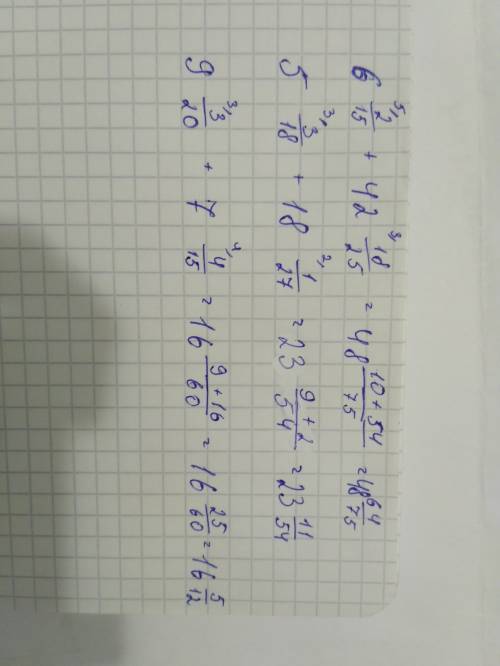 6 ⁵⁾2/15 + 42 ³⁾18/25 = 48 10+54/75 = 48 64/75
5 ³⁾3/18 + 18 ²⁾1/27 = 23 9+2/54 = 23 11/54
9 ³⁾3/20 + 7 ⁴⁾4/15 = 16 9+16/60 = 16 25/60 = 16 5/12